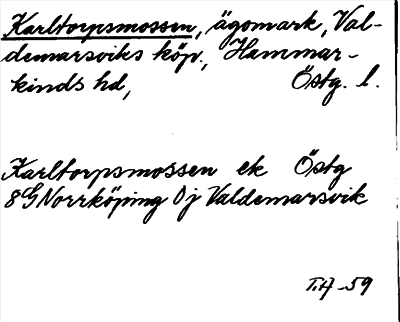 Karltorpsmossen, ägomark, Val-
demarsviks köp., Hammar-
kinds hd, Östg. l.
Karltorpsmossen ek Östg
8G Norrköping 0j Valdemarsvik
T.H -59